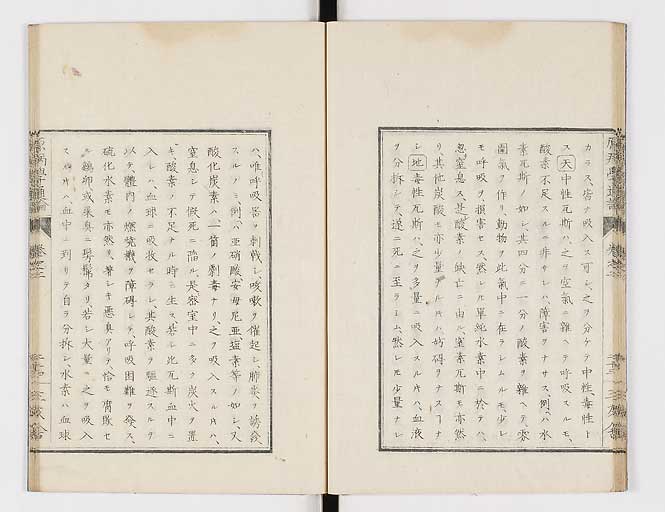 カラス、害ナク吸入ス可シ、之ヲ分ケテ中性、毒性ト
ス、天中性瓦斯ハ、之ヲ空氣ニ雜ヘテ呼吸スルモ、
酸素不足スルニ非サレハ、障害ヲナサス、例ハ水
素瓦斯ノ如シ、其四分ニ一分ノ酸素ヲ雜ヘテ、雰
圍氣ヲ作リ、動物ヲ此氣中ニ在ラシムルモ、少シ
モ呼吸ヲ損害セス、然レ𪜈單純水素中ニ於テハ、
忽窒息ス、是酸素ノ缺亡ニ由ル、窒素瓦斯モ亦然
リ、其他炭酸モ亦少量ナル𪜈ハ、妨碍ヲナスヿナ
シ、地毒性瓦斯ハ、之ヲ多量ニ吸入スル𪜈ハ、血液
ヲ分拆シテ、遂ニ死ニ至ラシム、然レ𪜈少量ナレ
ハ、唯呼吸器ヲ刺戟シ、咳嗽ヲ催起シ、肺炎ヲ誘發
スルノミ、例ハ亞硝酸、安母尼亞、塩素等ノ如シ、又
酸化炭素ハ、一箇ノ劇毒ナリ、之ヲ吸入スル𪜈ハ、
窒息シテ假死ニ陥ル、是密室中ニ多ク炭火ヲ置
キ、酸素ノ不足ナル時ニ生ス、若シ此瓦斯血中ニ
入レハ、血球ニ吸收セラレ、其酸素ヲ驅逐スルヲ
以テ、體内ノ燃燒機ヲ障碍シテ、呼吸困難ヲ發ス、
硫化水素モ亦然リ、第一キ惡臭アリテ恰モ腐敗セ
ル鷄卵或糞臭ニ髣髴タリ、若シ大量ニ之ヲ吸入
スル𪜈ハ、血中ニ到リテ自ラ分拆シ、水素ハ血球
原病學通論
卷之三
三友舎